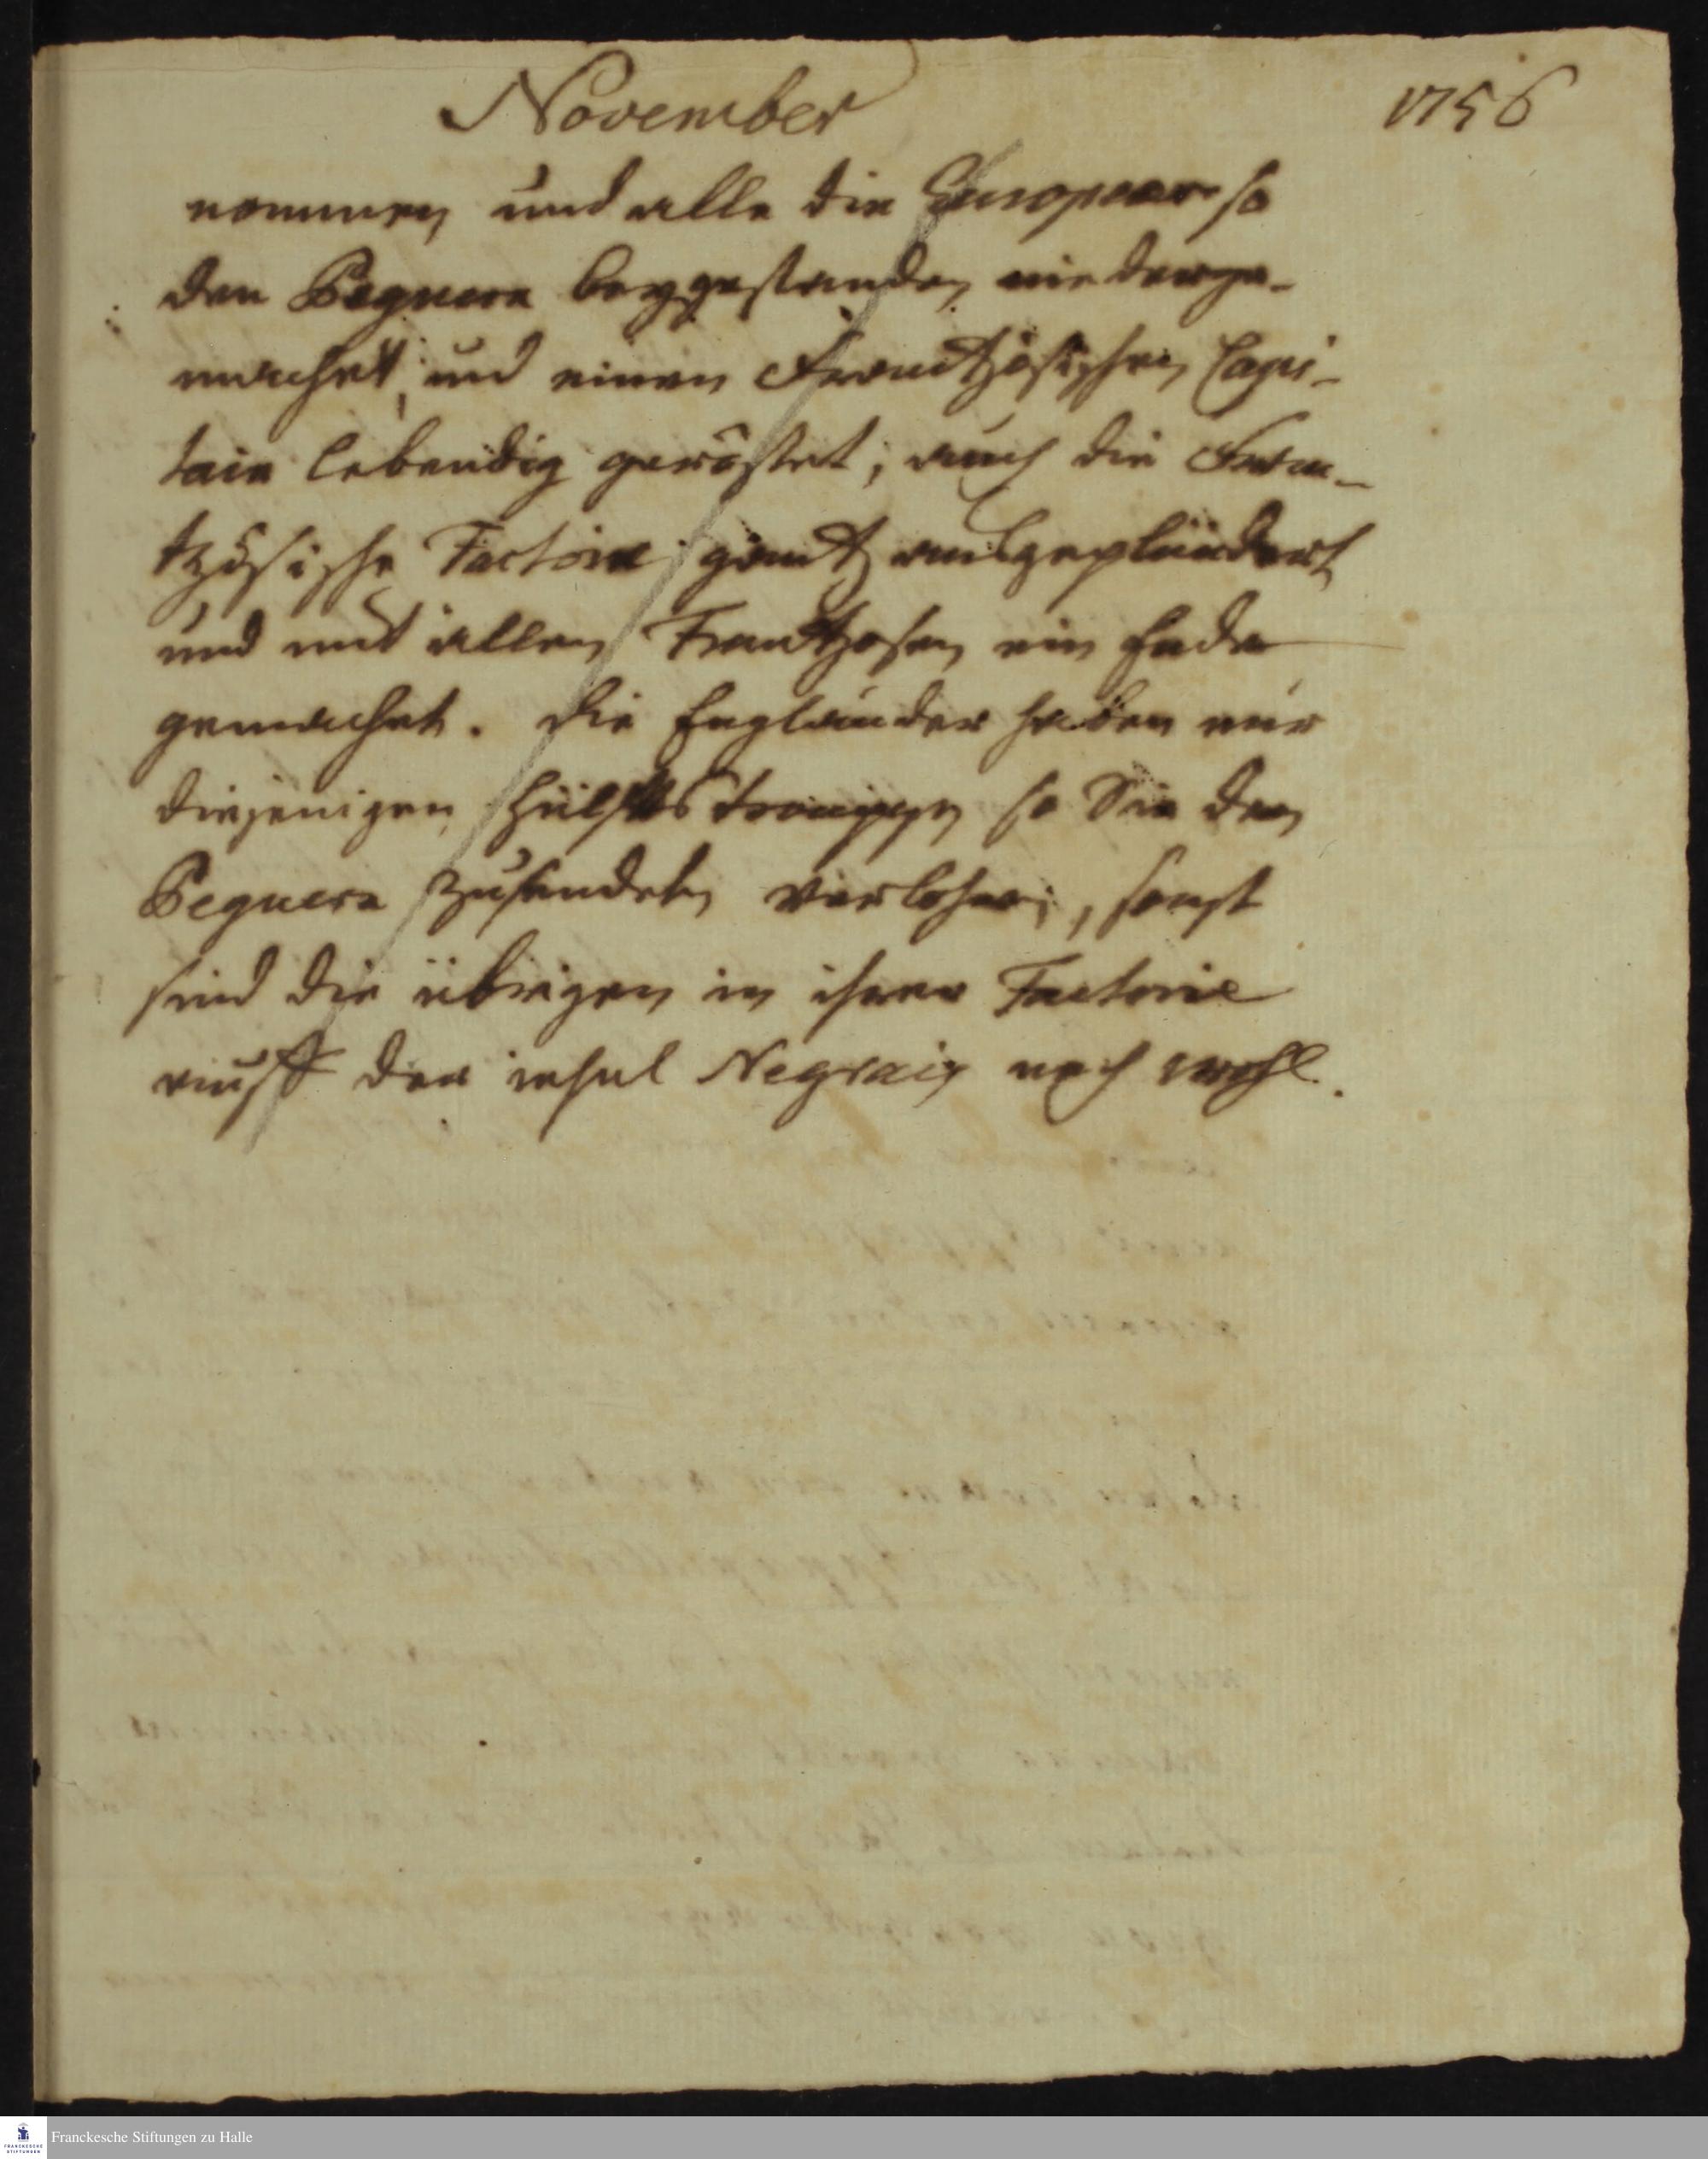 November 1756
nommen und alle die Europaer so
den Peguera beygestanden niederge-
machet, und einen Frantzösischen Capi-
tain lebendig geröstet, auch die Fran-
tzösische Factorie gantz ausgeplündert
und mit allen Frantzosen ein Ende
gemachet. Die Engländer haben nur
diejenigen Hülffs trouppen so Sie den
Peguera zusandten verlohren, sonst
sind die übrigen in ihrer Factorie
auff der insul Negrais noch wohl.
Franckesche Stiftungen zu Halle
FRANCKESCHE
STIFTUNGEN